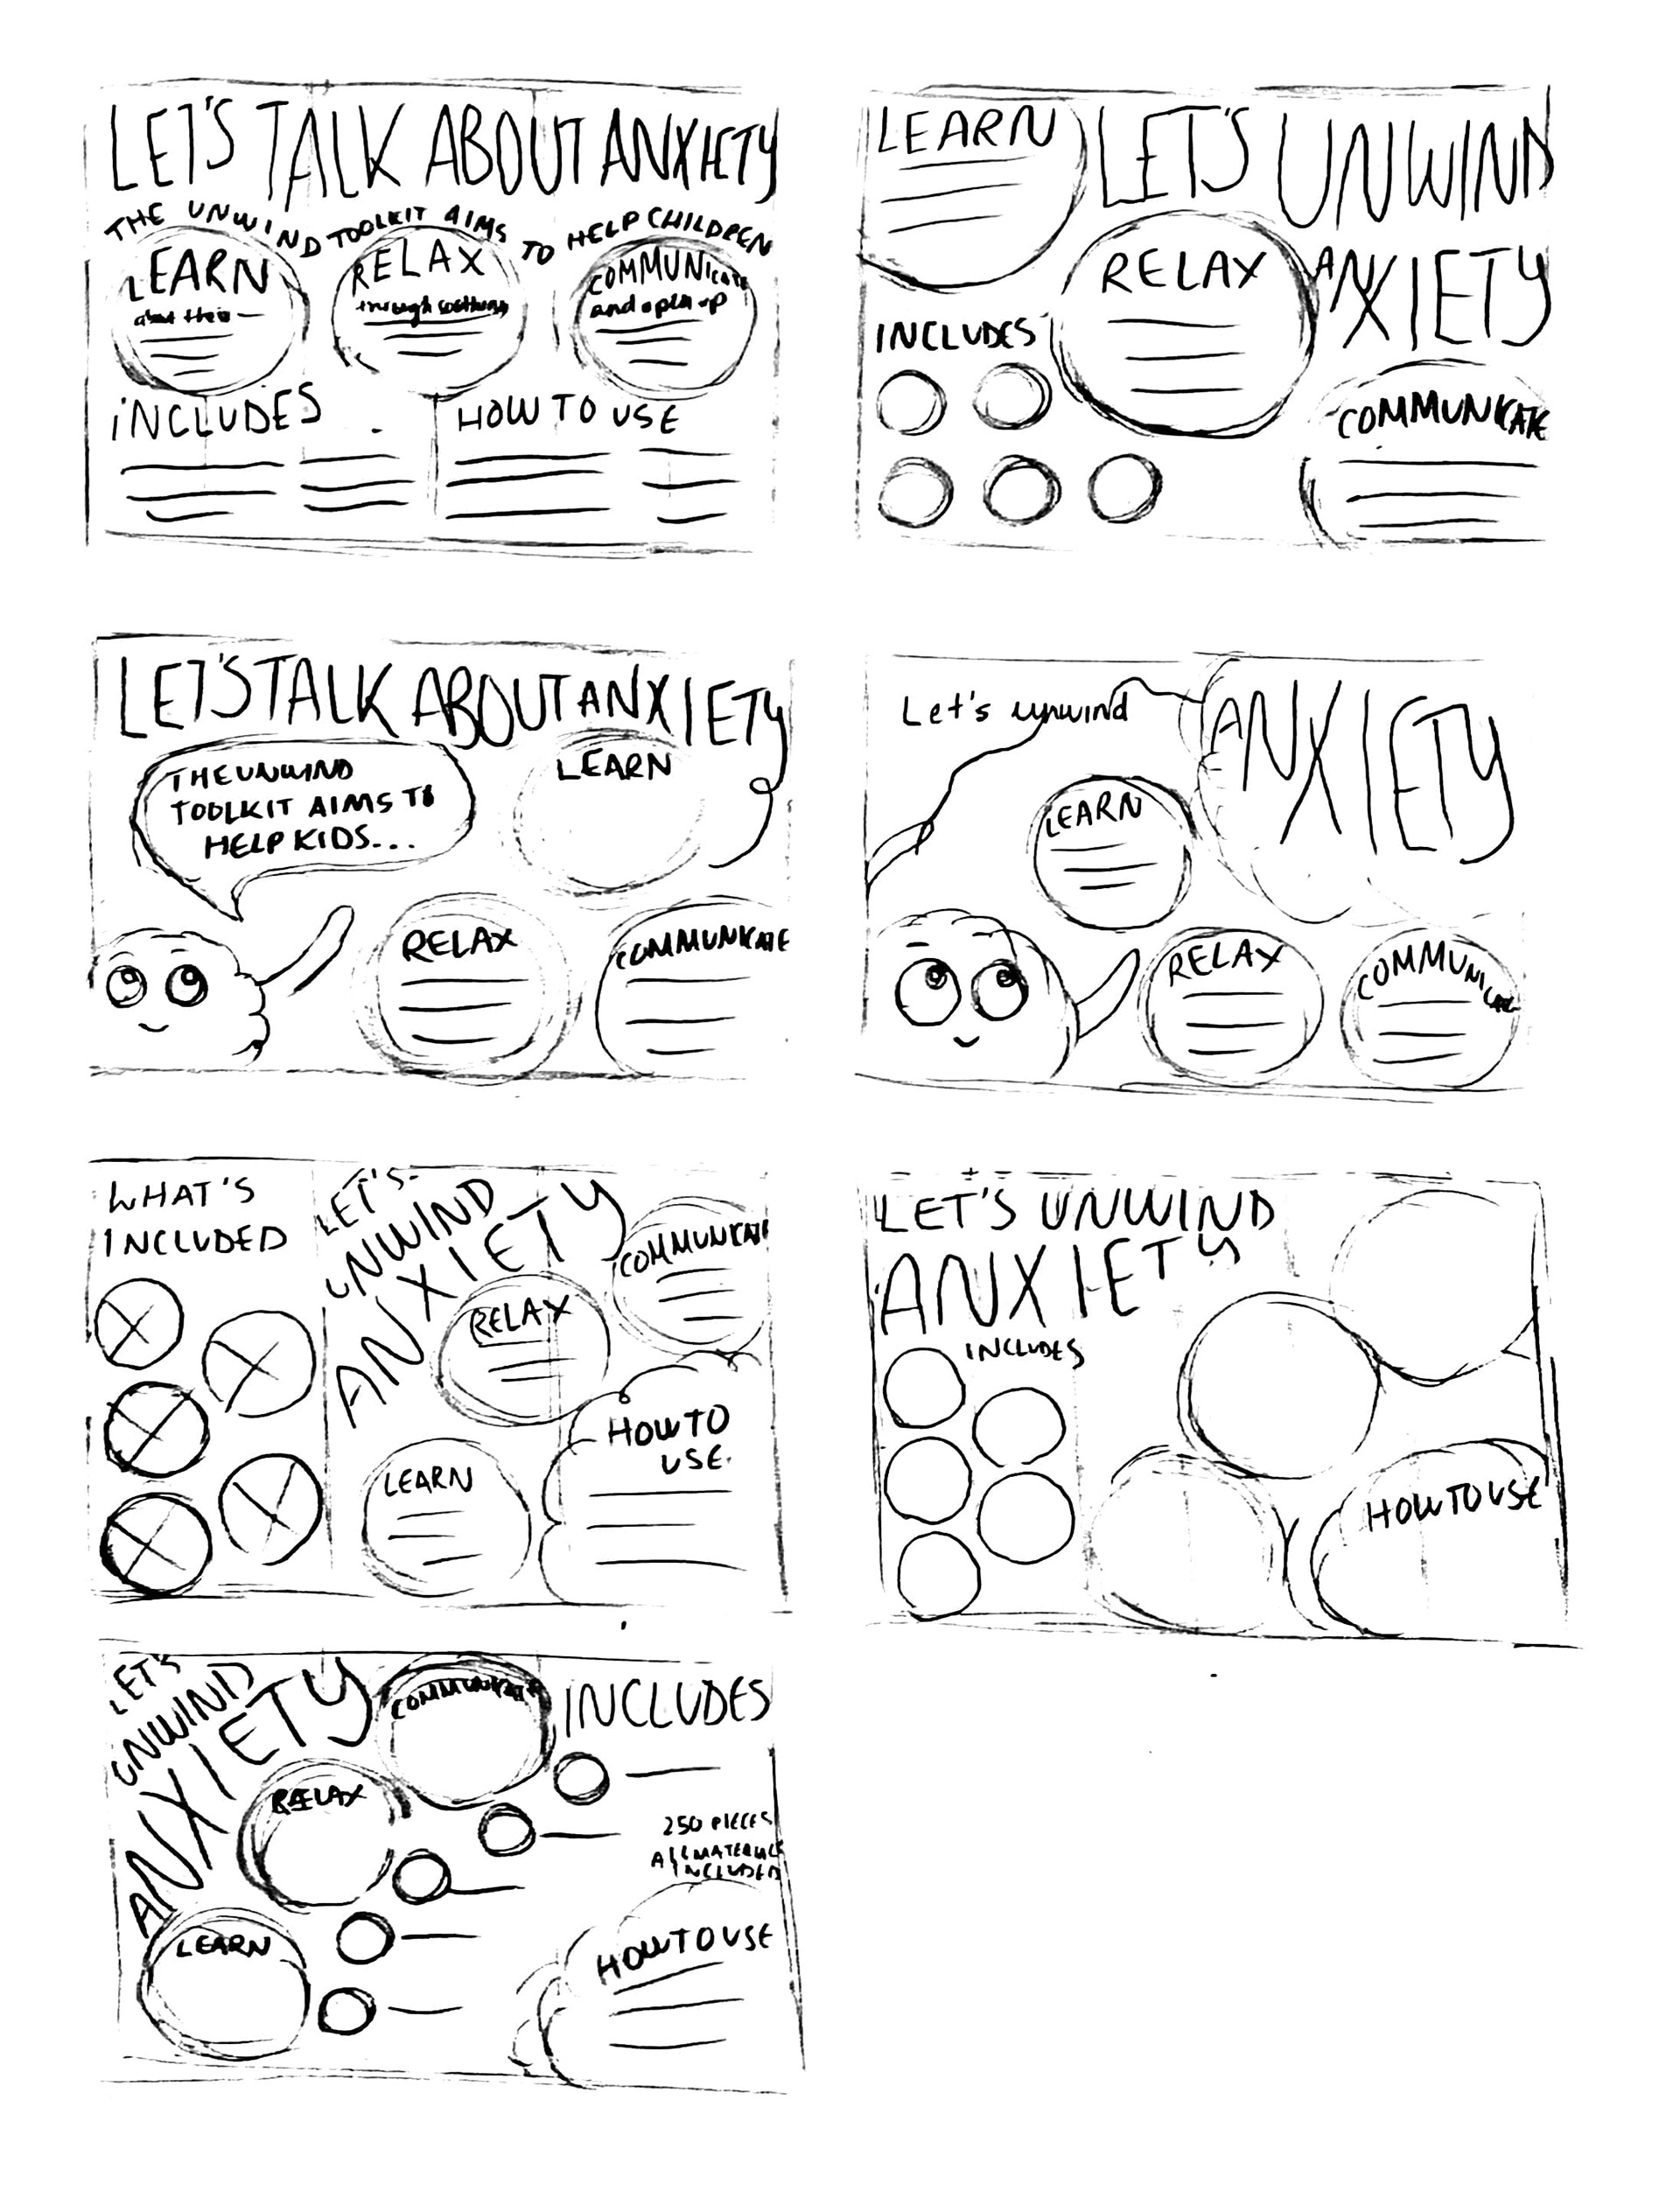 LET'S TALK ABOUT ANXIETY
THE UNWIND TOOLKIT AIMS TO HELP CHILDREN
LEARN
about their
RELAX
through soothing
COMMUNICATE
and open up
INCLUDES
HOW TO USE
LEARN
LET'S UNWIND
ANXIETY
RELAX
INCLUDES
COMMUNICATE
LET'S TALK ABOUT ANXIETY
THE UNWIND
TOOLKIT AIMS TO
HELP KIDS...
LEARN
RELAX
COMMUNICATE
Let's unwind
ANXIETY
LEARN
RELAX
COMMUNICATE
WHAT'S
INCLUDED
LET'S
UNWIND
ANXIETY
COMMUNICATE
RELAX
LEARN
HOW TO
USE.
LET'S UNWIND
ANXIETY
INCLUDES
HOW TO USE
LET'S
UNWIND
ANXIETY
COMMUNICATE
RELAX
LEARN
INCLUDES
250 PIECES
All MATERIALS
INCLUDED
HOW TO USE